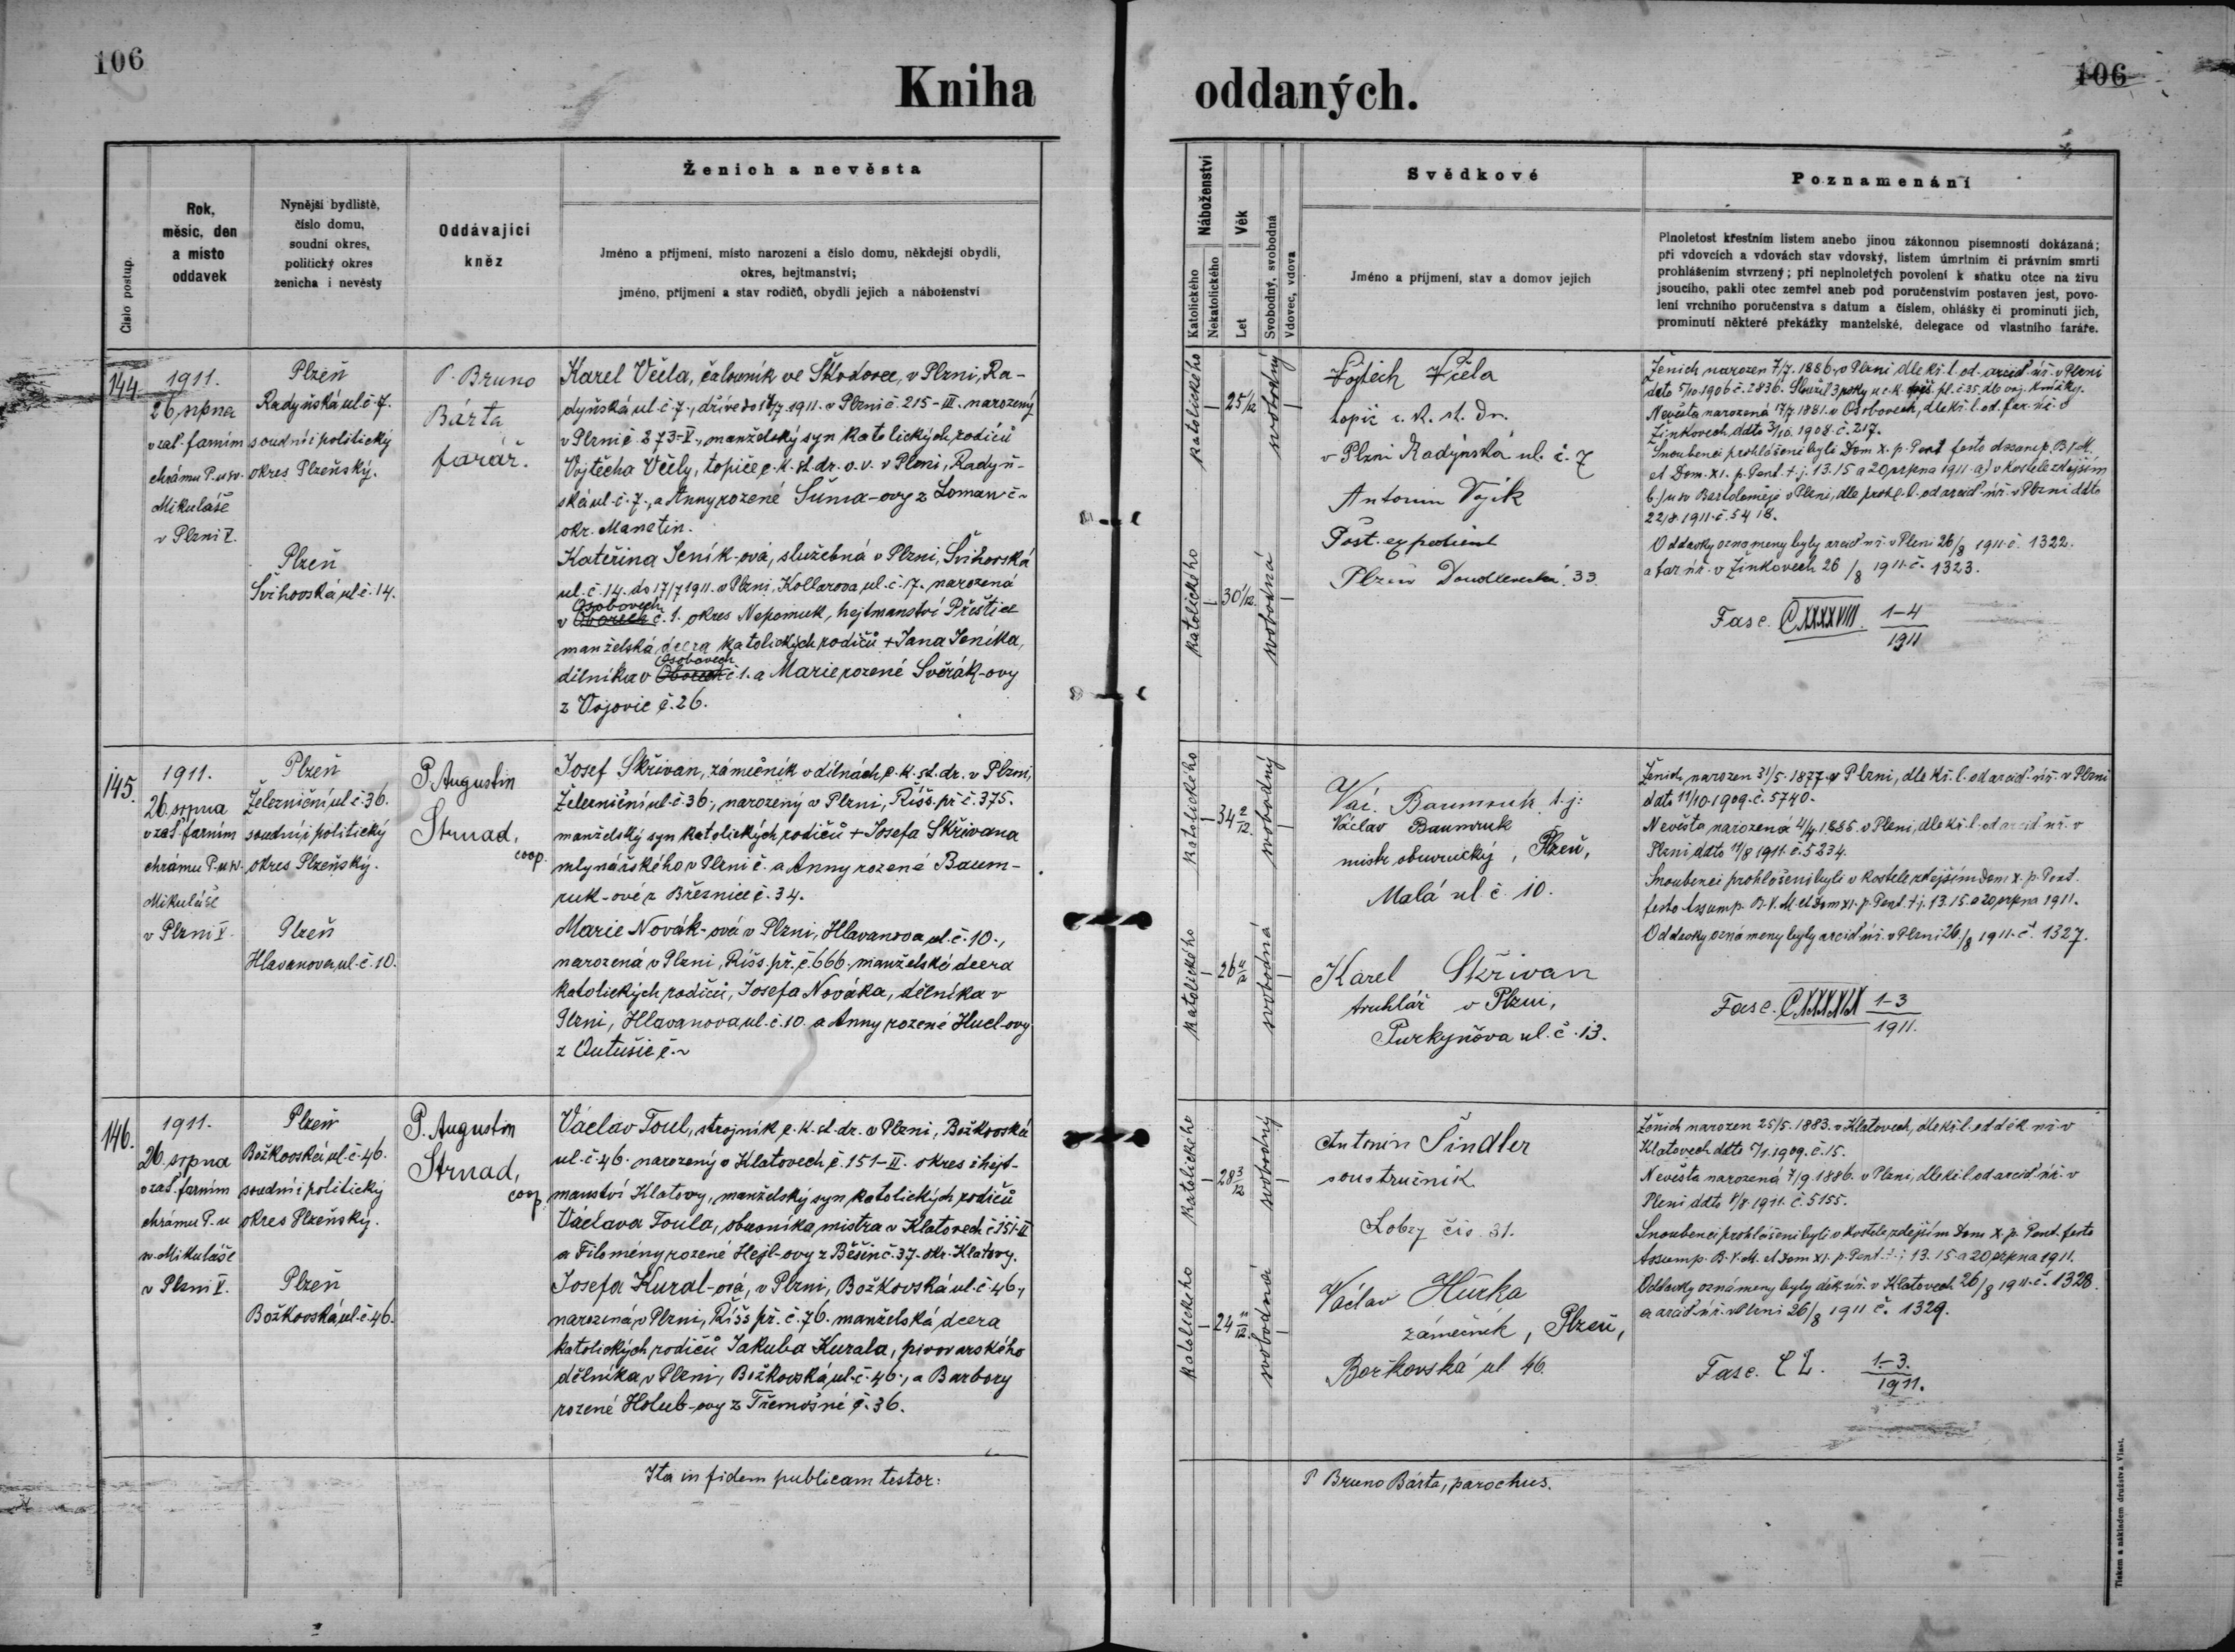 106
106
Kniha oddaných.
Číslo postup.
Rok,
měsíc, den
a místo
oddavek
Nynější bydliště,
číslo domu,
soudní okres,
politický okres
ženicha i nevěsty
Oddávající
kněz
Ženich a nevěsta
Jméno a příjmení, místo narození a číslo domu, někdejší obydlí,
okres, hejtmanství;
jméno, příjmení a stav rodičů, obydlí jejich a náboženství
Náboženství
Katolického
Nekatolického
Věk
Let
Svobodný, svobodná
Vdovec, vdova
Svědkové
Jméno a příjmení, stav a domov jejich
Poznamenání
Plnoletost křestním listem anebo jinou zákonnou písemností dokázaná;
při vdovcích a vdovách stav vdovský, listem úmrtním či právním smrti
prohlášením stvrzený; při neplnoletých povolení k sňatku otce na živu
jsoucího, pakli otec zemřel aneb pod poručenstvím postaven jest, povo-
lení vrchního poručenstva s datum a číslem, ohlášky či prominutí jich,
prominutí některé překážky manželské, delegace od vlastního faráře.
144
1911.
26. srpna
v zat. farním
chrámu P. u sv.
Mikuláše
v Plzni V.
Plzeň
Radyňská ul. č. 7.
soudní i politický
okres Plzeňský.
Plzeň
Švihovská ul. č. 14.
P. Bruno
Bárta
farář.
Karel Včela, čalouník ve Škodovce, v Plzni, Ra-
dyňská ul. č. 7., dříve do 17/7 1911. v Plzni č. 215-III. narozený
v Plzni č. 273-V., manželský syn katolických rodičů
Vojtěcha Včely, topiče c. k. st. dr. o. v. v Plzni, Radyň-
ská ul. č. 7., a Anny rozené Šůma-ovy z Loman č.~
okr. Manetin.
Kateřina Jeník-ová, služebná v Plzni, Švihovská
ul. č. 14. do 17/7 1911. v Plzni, Kollarova ul. č. 17. narozená
Osobovech
v Oborech č. 1. okres Nepomuk, hejtmanství Přeštice
manželská dcera katolických rodičů + Jana Jeníka,
Osobovech
dělníka v Oborech č. 1. a Marie rozené Svěrák-ovy
z Vojovic č. 26.
katolického
25 1/12
svobodný
katolického
30 1/12
svobodná
Vojtěch Včela
topič c. k. st. dr.
v Plzni Radyňská ul. č. 7
Antonin Vojík
Pošt. expedient
Plzeň Doudlevecká 33.
Ženich narozen 7/7. 1886. v Plzni dle kř. l. od. arciď. úř. v Plzni
dato 5/10. 1906 č. 2836. Sloužil 3 roky u c. k.
Nevěsta narozená 17/7. 1881. v Osobovech, dle kř. l. od. far. úř. v
Žinkovech ddto 3/10. 1908. č. 217.
Snoubenci prohlášeni byli Dom X. p. Pent festo Assump. B. V. M.
et Dom. XI. p. Pent. t. j. 13. 15 a 20 srpna 1911. a) v kostele zdejším
b.) u sv Bartoloměje v Plzni, dle prohl. l. od arciď. úř. v Plzni ddto
22/8. 1911. č. 5418.
Oddavky oznámeny byly arciď. úř. v Plzni 26/8 1911. č. 1322.
a far. úř. v Žinkovech 26/8 1911. č. 1323.
Fasc. CXXXXVIII. 1-4
1911
145.
1911.
26. srpna
v zat. farním
chrámu P. u sv.
Mikuláše
v Plzni V.
Plzeň
Železniční ul. č. 36.
soudní i politický
okres Plzeňský.
Plzeň
Hlavanova ul. č. 10.
P. Augustin
Strnad,
coop.
Josef Skřivan, zámečník v dílnách, c. k. st. dr. v Plzni,
Železniční ul. č. 36., narozený v Plzni, Říšs. př. č. 375.
manželský syn katolických rodičů + Josefa Skřivana
mlynářského v Plzni č. a Anny rozené Baum-
ruk-ové z Březnice č. 34.
Marie Novák-ová v Plzni, Hlavanova ul. č. 10.,
narozená v Plzni, Říšs. př. č. 666. manželská dcera
katolických rodičů, Josefa Nováka, dělníka v
Plzni, Hlavanova ul. č. 10. a Anny rozené Hucl-ovy
z Outušic č.~
katolického
34 2/12
svobodný
katolického
26 4/12
svobodná
Vác. Baumruk t. j.:
Václav Baumruk
mistr obuvnický, Plzeň,
Malá ul. č. 10.
Karel Skřivan
truhlář v Plzni,
Purkyňova ul. č. 13.
Ženich narozen 31/5. 1877. v Plzni, dle kř. l. od arciď. úř. v Plzni
dato 11/10. 1909. č. 5740.
Nevěsta narozená 4/4. 1885. v Plzni, dle kř. l. od arciď. úř. v
Plzni, ddto 11/8 1911. č. 5234.
Snoubenci prohlášeni byli v kostele zdejším Dom X. p. Pent.
festo Assump. B. V. M. et Dom XI. p. Pent. t. j. 13. 15. a 20. srpna 1911.
Oddavky oznámeny byly arciď. úř. v Plzni 26/8 1911. č. 1327.
Fasc. CXXXXIX 1-3
1911.
146.
1911.
26. srpna
v zat. farním
chrámu P. u
sv. Mikuláše
v Plzni V.
Plzeň
Božkovská ul. č. 46.
soudní i politický
okres Plzeňský.
Plzeň
Božkovská ul. č. 46.
P. Augustin
Strnad,
coop.
Václav Toul, strojník c. k. st. dr. v Plzni, Božkovská
ul. č. 46. narozený v Klatovech č. 151-II. okres i hejt-
manství Klatovy, manželský syn katolických rodičů
Václava Toula, obuvníka mistra v Klatovech č. 151-II
a Filomény rozené Hejl-ovy z Běšin č. 37. okr. Klatovy.
Josefa Kural-ová, v Plzni, Božkovská ul. č. 46.,
narozená v Plzni, Říšs př. č. 76. manželská dcera
katolických rodičů Jakuba Kurala, pivovarského
dělníka v Plzni, Božkovská ul. č. 46., a Barbory
rozené Holub-ovy z Třemošné č. 36.
katolického
28 3/12
svobodný
katolického
24 11/12
svobodná
Antonin Šindler
soustružník
Lobzy čís. 31.
Václav Hůrka
zámečník, Plzeň,
Božkovská ul 46.
Ženich narozen 25/5. 1883. v Klatovech, dle kř. l. od děk. úř. v
Klatovech ddto 7/1. 1909. č. 15.
Nevěsta narozená 7/9. 1886. v Plzni, dle kř. l. od arciď. úř. v
Plzni, ddto 8/8. 1911. č. 5155.
Snoubenci prohlášeni byli v kostele zdejším Dom X. p. Pent. festo
Assump. B. V. M. et Dom XI. p. Pent. t. j. 13. 15 a 20 srpna 1911.
Oddavky oznámeny byly děk. úř. v Klatovech 26/8 1911. č. 1328.
a arciď. úř. v Plzni 26/8 1911 č. 1329.
Fasc. CL. 1.-3.
1911.
Ita in fidem publicam testor:
P Bruno Bárta, parochus.
Tiskem a nákladem družstva Vlast.